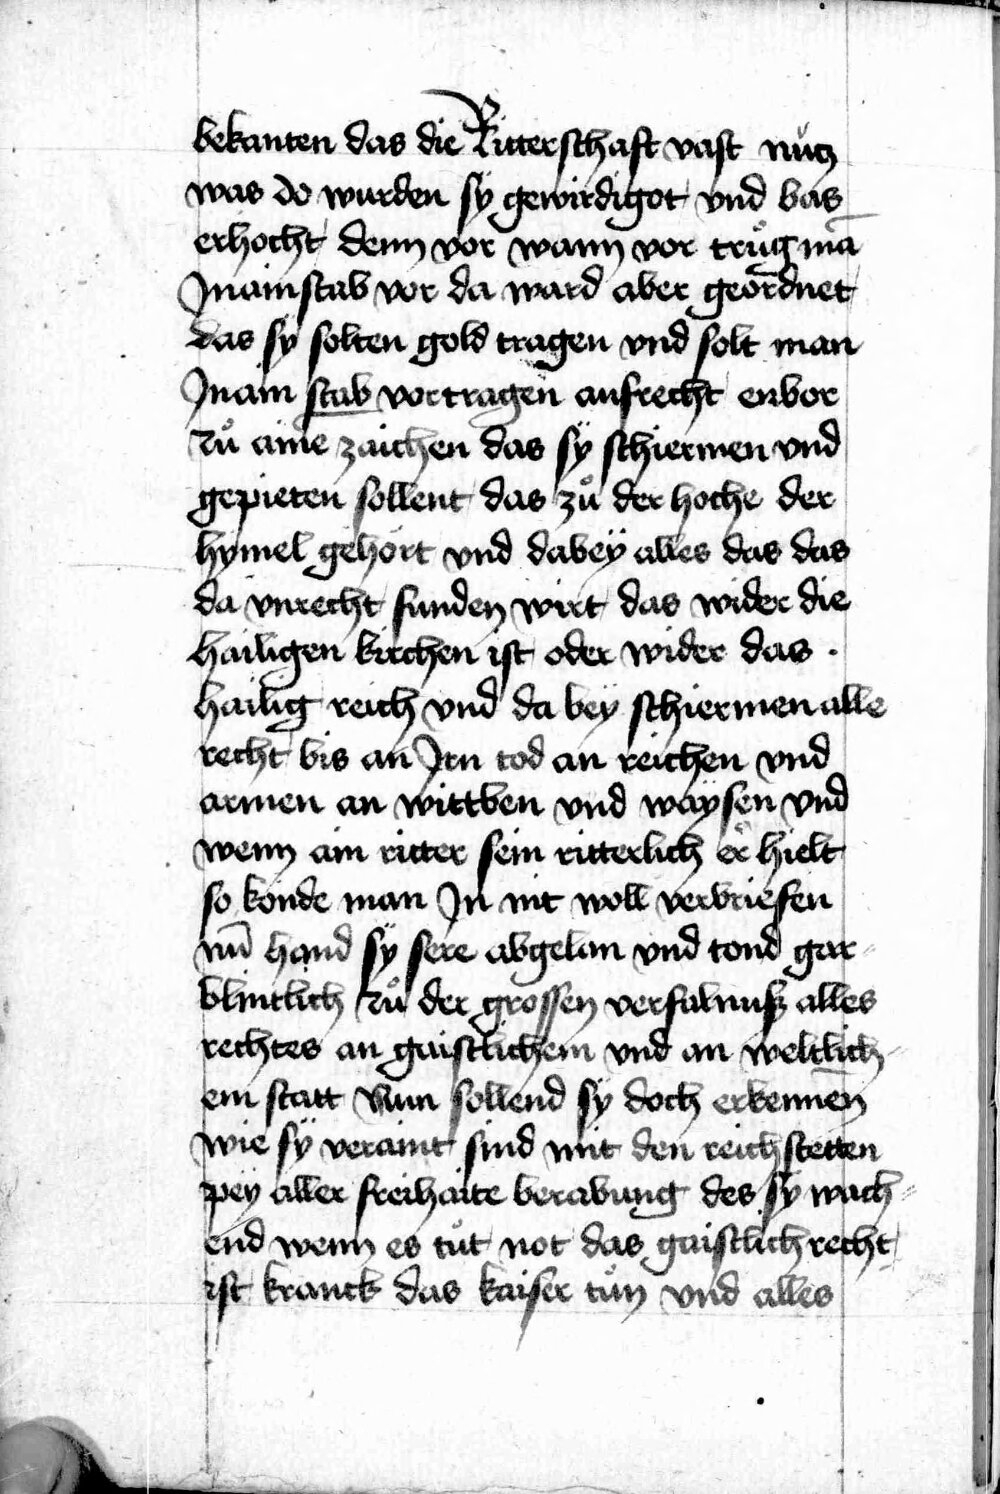 bekanten das die Ritterschaft vast nücz
was do wurden sÿ gewirdigot vnd bas
erhocht denn vor wann vor trůg mā
Jn ain stab vor da ward aber geordnet
das sÿ solten gold tragen vnd solt man
Jn ain stab vor tragen aufrecht enbor
zů aine zaichen das sÿ schiermen vnd
gepieten sollent das zů der hoche der
hymel gehört vnd dabeÿ alles das das
da vnrecht funden wirt das wider die
hailigen kirchen ist oder wider das .
hailig reich vnd da beÿ schiermen alle
recht bis an Jrn tod an reichen vnd
armen an wittben vnd waÿsen vnd
wenn ain ritter sein ritterlich er hielt
so konde man Jn nit woll verbriefen
nū hand sÿ sere abgelan vnd tond gar
blintlich zů der grossen verfalnusz alles
rechtes an gaistlichem vnd an weltlich-
em statt Nun sollend sÿ doch erkennen
wie sÿ veraint sind mit den reichstetten
peÿ aller freihaite berabung des sÿ wach-
end wenn es tůt not das gaistlich recht
ist kranck das kaiser tům vnd alles